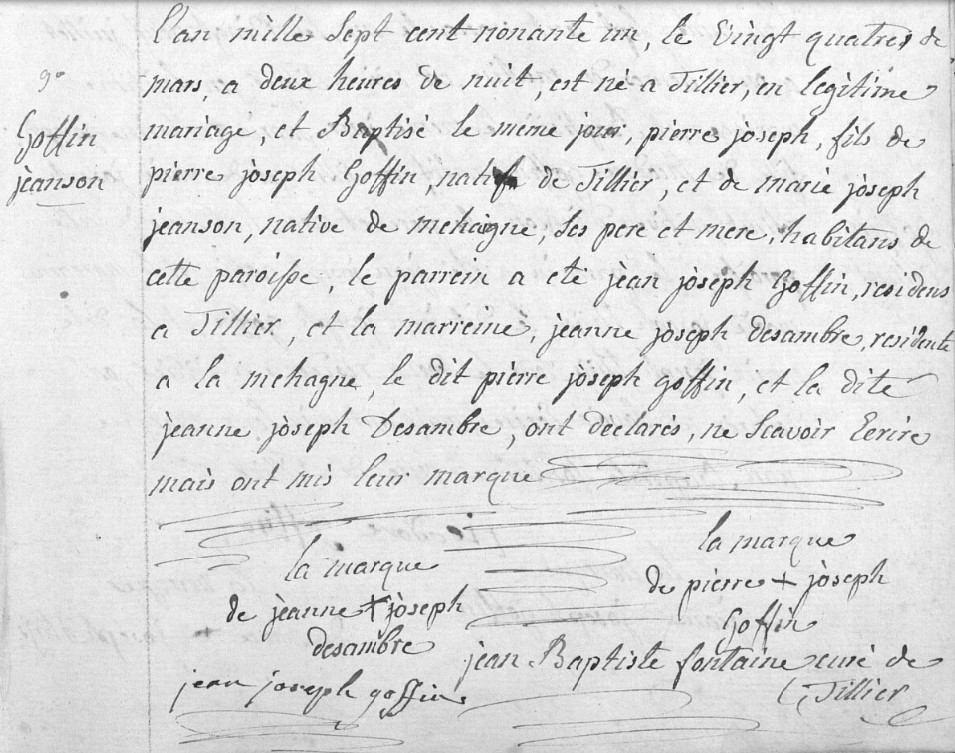 9º
Goffin
jeanson
L'an mille Sept cent nonante un, le Vingt quatres de
mars, a deux heures de nuit, est né a Tillier, en legitime
mariage, et Baptisé le meme jour, pierre joseph, fils de
pierre joseph Goffin, natif de Tillier, et de marie joseph
jeanson, native de mehaigne, Ses pere et mere, habitans de
cette paroisse, le parrein a eté jean joseph Goffin, residens
a Tillier, et la marreine, jeanne joseph desambre, residente
a la mehagne, le dit pierre joseph goffin, et la dite
jeanne joseph Desambre, ont declarés, ne Scavoir Ecrire
mais ont mis leur marque
la marque
de jeanne + joseph
desambre
la marque
de pierre + joseph
Goffin
jean joseph goffin
jean Baptiste fontaine curé de
Tillier